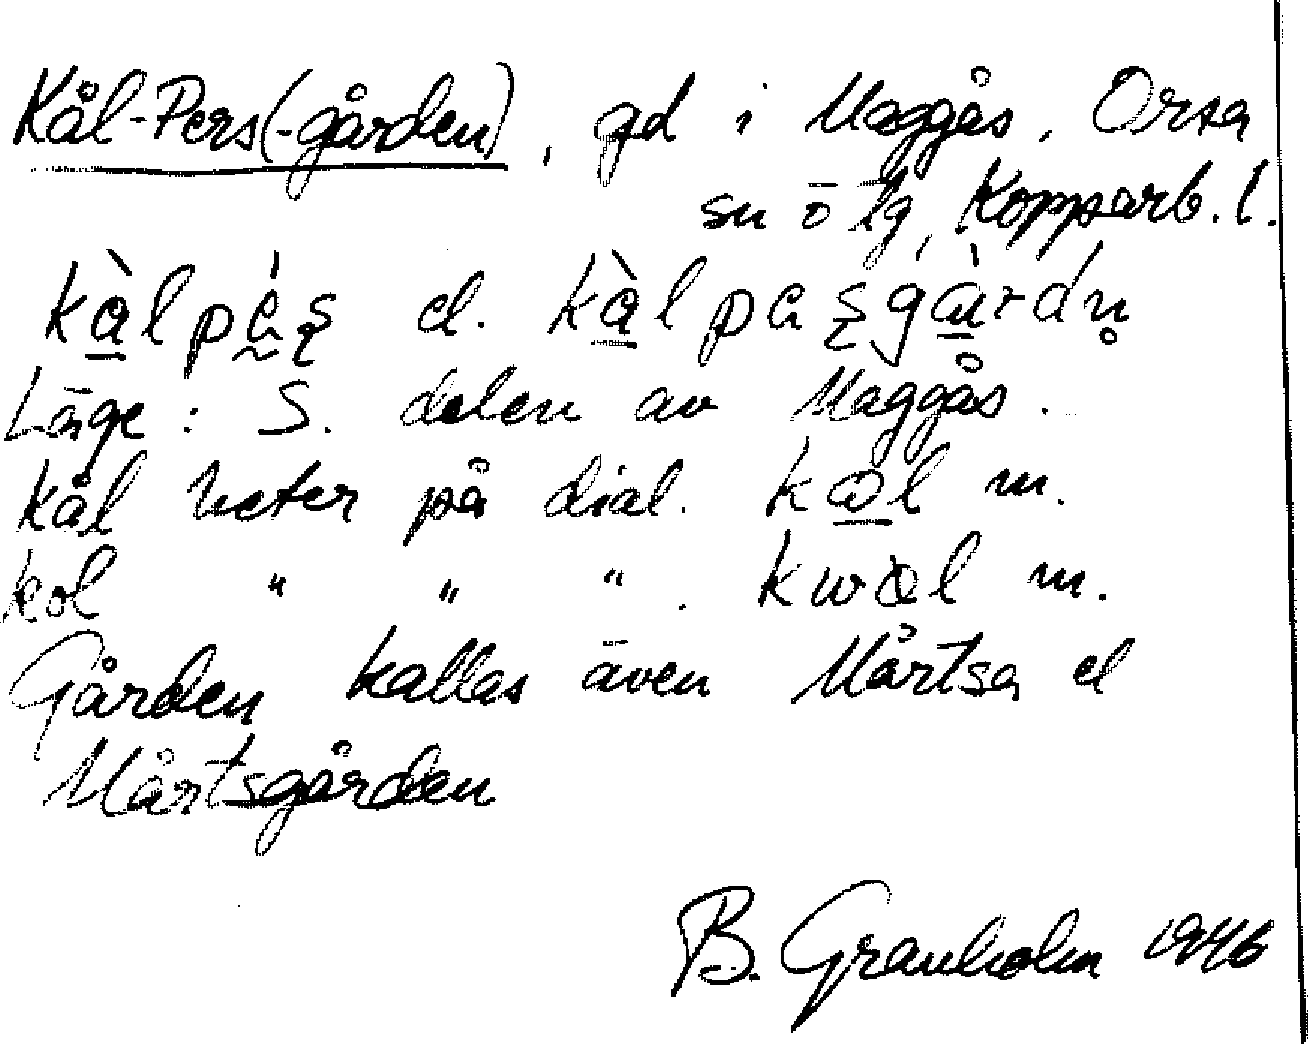 Kål-Pers(-gården), gd i Maggås, Orsa
sn ö tg, Kopparb. l.
kàlpés el. kàlpasgàrdn̥
Läge: S. delen av Maggås.
kål heter på dial. kal m.
kol " " ". kwàl m.
Gården kallas även Mårtsa el
Mårtsgården
B. Granholm 1946